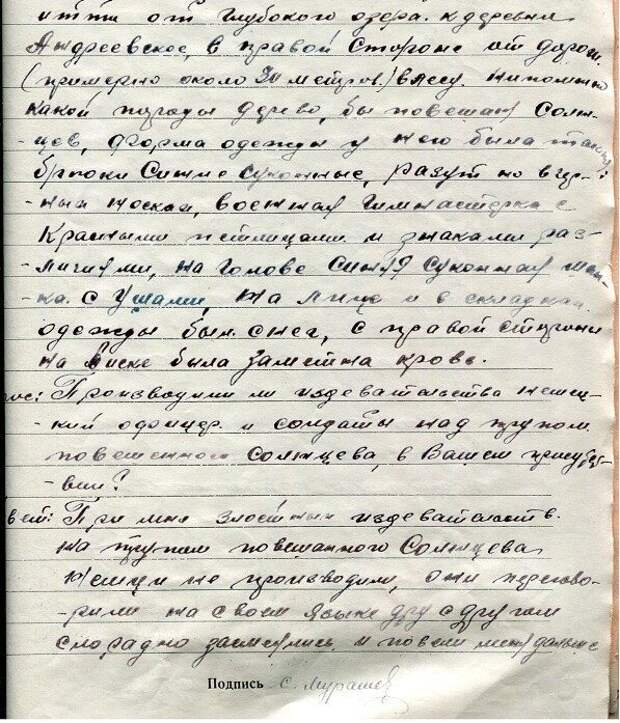 итти от глубокого озера. к деревни
Андреевское, в правой стороне от дороги
(примерно около 20 метров) в лесу. непомню
какой породы дерево, был повешан Солн-
-цев, форма одежды у него была такая:
брюки Синие суконные, разут но в чер-
-ных носках, военная гимнастерка с
Красными петлицами и знаками раз-
-личиями, на голове Синяя суконная шап-
-ка. с ушами, на лице и в складках
одежды был снег, с правой стороны
на виске была заметна кровь.
рос: Производили ли издевательства немец-
-кий офицер и солдаты над трупом
повешенного Солнцева, в Вашем присутст-
-вии?
вет: При мне злостных издевательств.
на трупом повешанного Солнцева
Немцы не производили, они перегово-
-рили на своем языке друг с другом
злорадно засмеялись и повели меня дальше
Подпись С. Мурашев